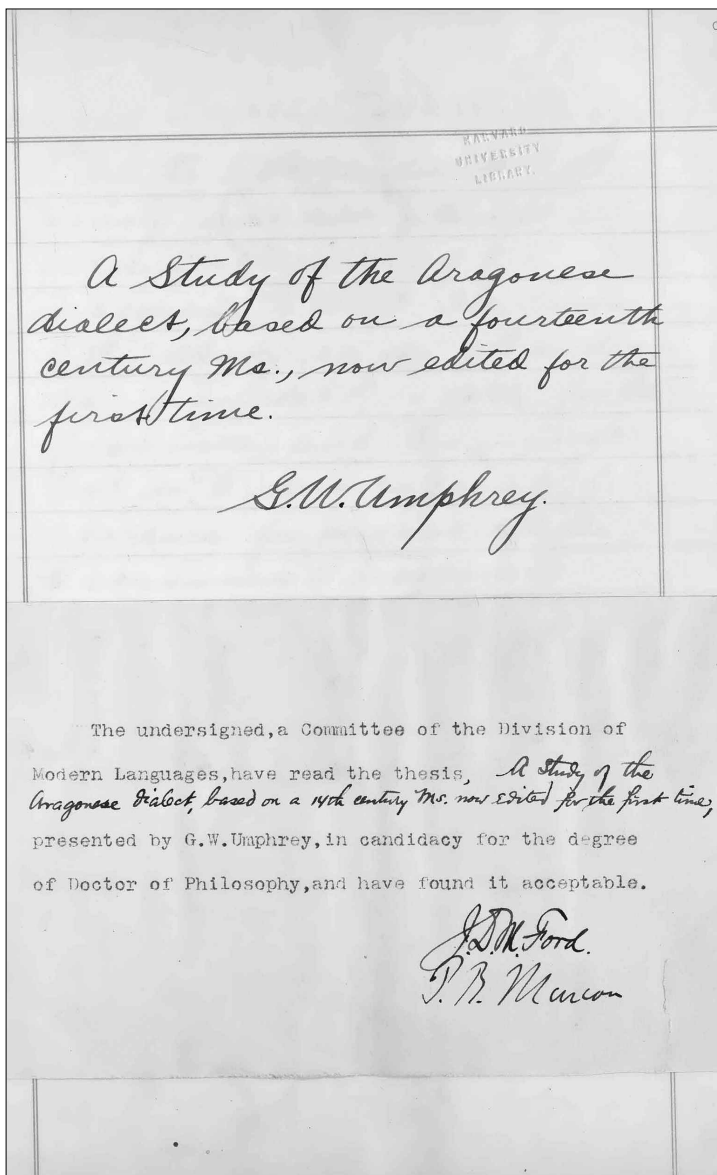 HARVARD
UNIVERSITY
LIBRARY.
A Study of the Aragonese
dialect, based on a fourteenth
century Ms., now edited for the
first time.
G.W.Umphrey.
The undersigned,a Committee of the Division of
Modern Languages,have read the thesis, A Study of the
Aragonese dialect, based on a 14th century Ms. now edited for the first time,
presented by G.W.Umphrey,in candidacy for the degree
of Doctor of Philosophy,and have found it acceptable.
J.D.M.Ford.
P. B. Marcou